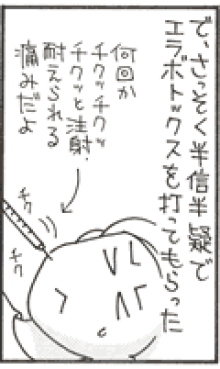 で、さっそく半信半疑で
エラボトックスを打ってもらった
何回か
チクッチクッ
チクッと注射。
耐えられる
痛みだよ
チク
チク